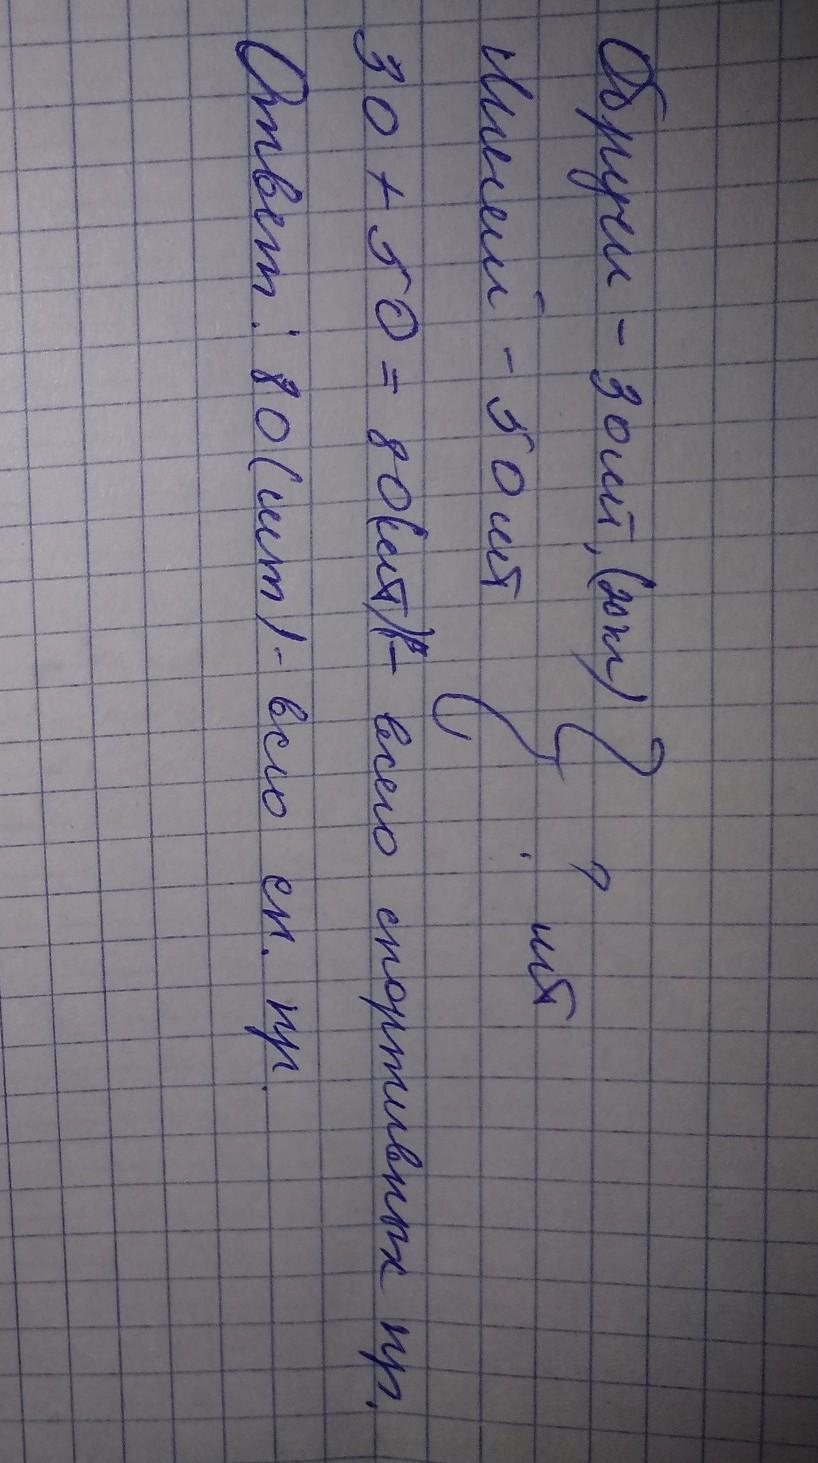 Обручи - 30шт, (
Мячей - 50шт
? шт
30 + 50 = 80(шт) - всего спортивных пр.
Ответ: 80(шт) - всго сп. пр.